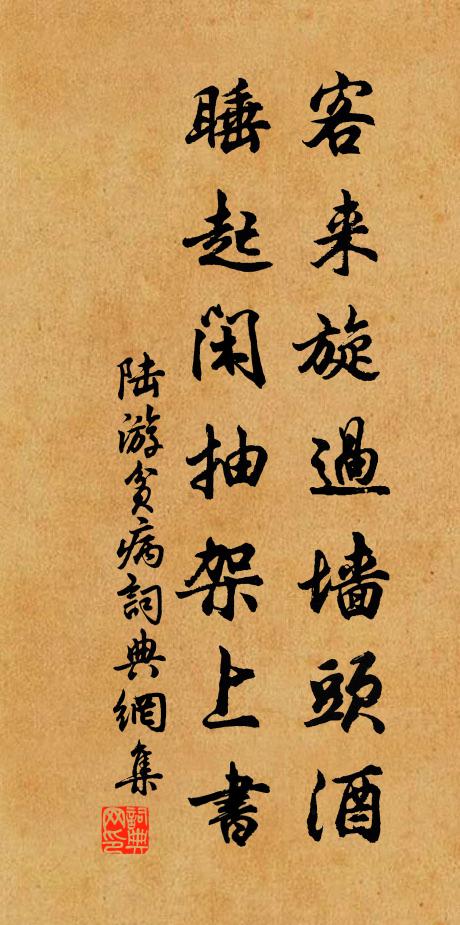 客来旋過墙頭酒
睡起閑抽架上書
陆游貧病詞典網集
詞典网印